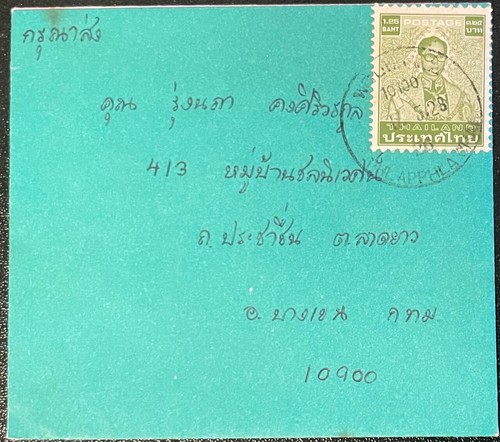 กรุณาส่ง
1.25 BAHT POSTAGE ๑.๒๕ บาท
THAILAND
ประเทศไทย
10100
28
คุณ รุ่งนภา คงศิริวรกุล
413 หมู่บ้านชลนิเวศน์
ถ.ประชาชื่น ต.ลาดยาว
อ. บางเขน กทม
10900